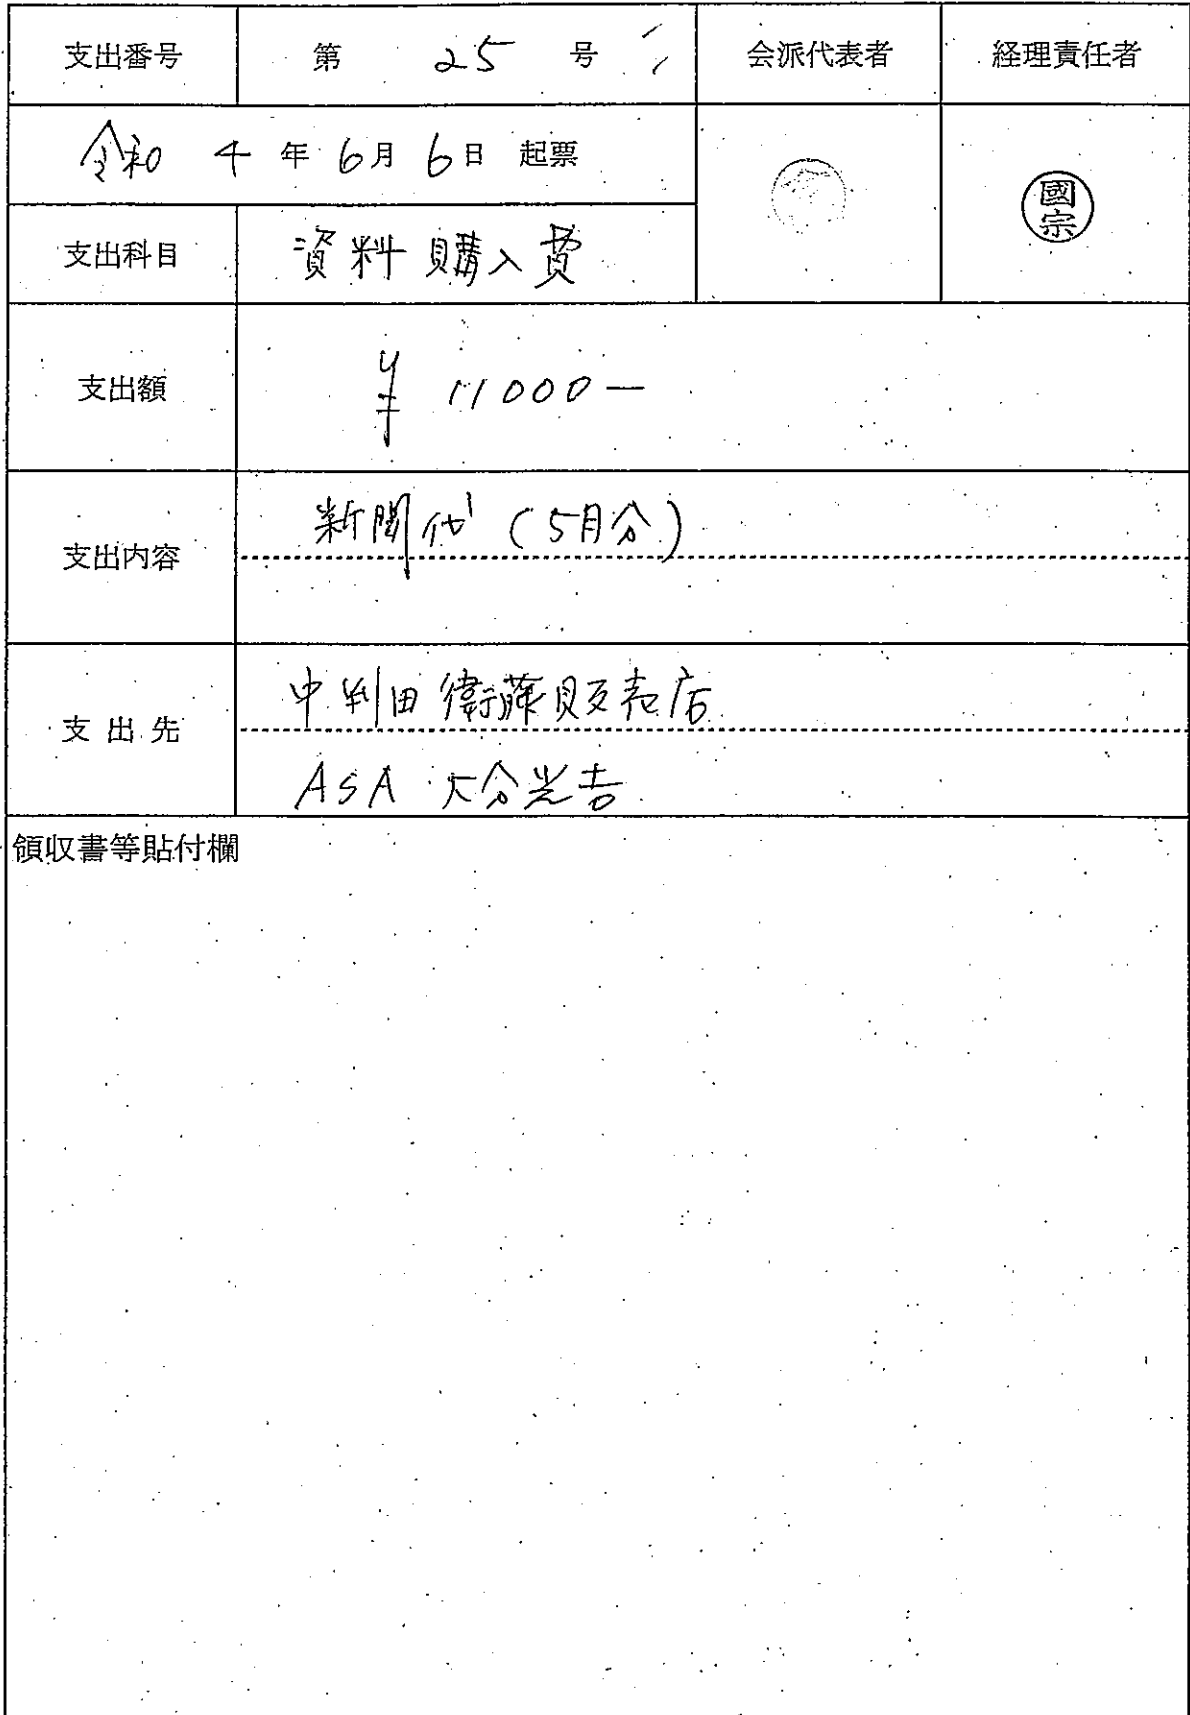 支出番号 第 25 号 会派代表者 経理責任者
令和 4 年 6月 6日 起票
國宗
支出科目 資料購入費
支出額 ¥ 11000ー
支出内容 新聞代 (5月分)
支出先 中判田衛藤販売店
ASA 大分光吉
領収書等貼付欄